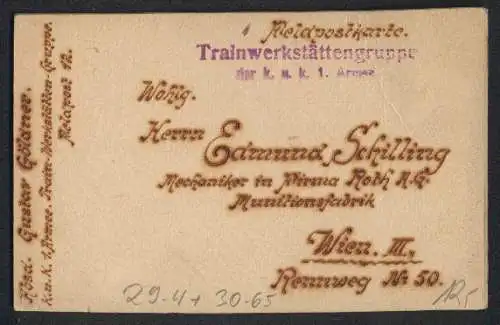 Feldpostkarte.
Trainwerkstättengruppe
der k. u. k. 1. Armee
Wohlg.
Herrn Edmund Schilling
Mechaniker in Firma Roth A.G.
Munitionsfabrik
Wien. III.
Rennweg № 50.
Absd. Gustav Goldner.
k.u.k. 1. Armee. Train-Werkstätten-Gruppe.
Feldpost 12.
29-4+ 30-65